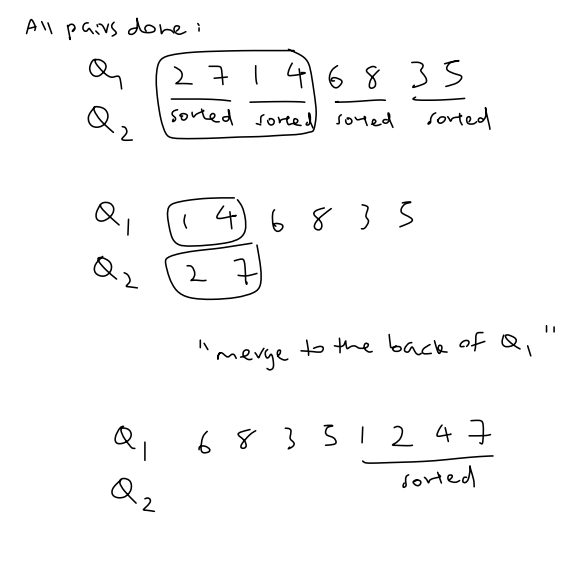 All pairs done :
Q1 2 7 1 4 6 8 3 5
Q2 sorted sorted sorted sorted
Q1 1 4 6 8 3 5
Q2 2 7
"merge to the back of Q1"
Q1 6 8 3 5 1 2 4 7
sorted
Q2